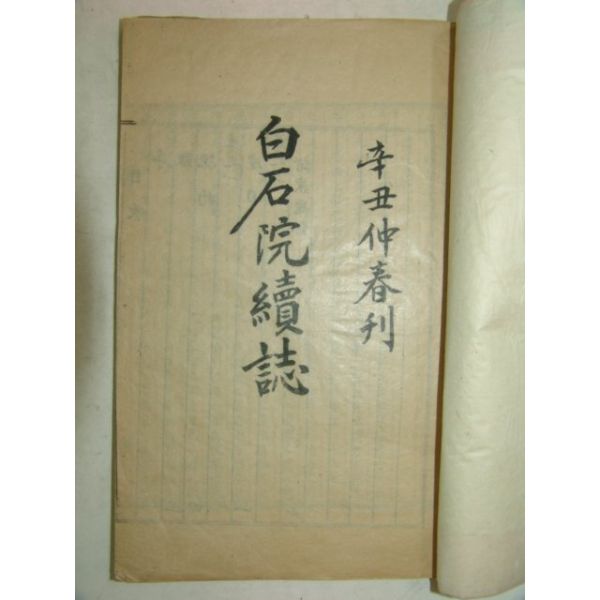 辛丑仲春刊
白石院續誌